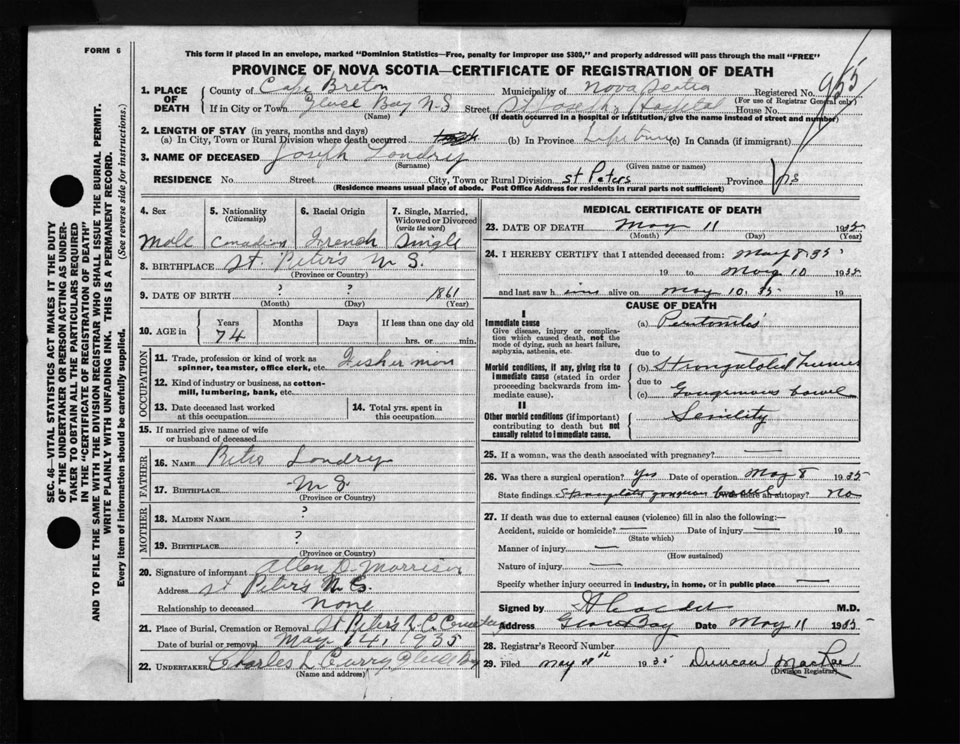 FORM 6
This form if placed in an envelope, marked "Dominion Statistics—Free, penalty for improper use $300," and properly addressed will pass through the mail "FREE"
PROVINCE OF NOVA SCOTIA—CERTIFICATE OF REGISTRATION OF DEATH
955
1. PLACE OF DEATH
County of Cape Breton Municipality of Nova Scotia Registered No.
(For use of Registrar General only)
If in City or Town Glace Bay N-S Street St Joseph's Hospital House No.
(Name) (If death occurred in a hospital or institution, give the name instead of street and number)
2. LENGTH OF STAY (in years, months and days)
(a) In City, Town or Rural Division where death occurred (b) In Province Life time (c) In Canada (if immigrant)
3. NAME OF DECEASED Joseph Londry
(Surname) (Given name or names)
RESIDENCE No. Street City, Town or Rural Division St Peters Province NS
(Residence means usual place of abode. Post Office Address for residents in rural parts not sufficient)
SEC. 46—VITAL STATISTICS ACT MAKES IT THE DUTY
OF THE UNDERTAKER OR PERSON ACTING AS UNDER-
TAKER TO OBTAIN ALL THE PARTICULARS REQUIRED
IN THE "CERTIFICATE OF REGISTRATION OF DEATH"
AND TO FILE THE SAME WITH THE DIVISION REGISTRAR WHO SHALL ISSUE THE BURIAL PERMIT.
WRITE PLAINLY WITH UNFADING INK. THIS IS A PERMANENT RECORD.
Every item of information should be carefully supplied. (See reverse side for instructions.)
4. Sex
Male
5. Nationality
(Citizenship)
Canadian
6. Racial Origin
French
7. Single, Married, Widowed or Divorced
(write the word)
Single
8. BIRTHPLACE St. Peters N S.
(Province or Country)
9. DATE OF BIRTH ? ? 1861
(Month) (Day) (Year)
10. AGE in
Years Months Days If less than one day old
74 hrs. or min.
OCCUPATION
11. Trade, profession or kind of work as spinner, teamster, office clerk, etc. Fisherman
12. Kind of industry or business, as cotton-mill, lumbering, bank, etc.
13. Date deceased last worked at this occupation
14. Total yrs. spent in this occupation
15. If married give name of wife or husband of deceased
FATHER
16. NAME Londry
17. BIRTHPLACE N S
(Province or Country)
MOTHER
18. MAIDEN NAME ?
19. BIRTHPLACE ?
(Province or Country)
20. Signature of informant Allen D. Morrison
Address St Peters N S
Relationship to deceased none
21. Place of Burial, Cremation or Removal St Peters R. C. Cemetery
Date of burial or removal May 14, 1935
22. UNDERTAKER Charles L Curry Glace Bay
(Name and address)
MEDICAL CERTIFICATE OF DEATH
23. DATE OF DEATH May 11 1935
(Month) (Day) (Year)
24. I HEREBY CERTIFY that I attended deceased from: May 8 35
19 to May 10 1935
and last saw him alive on May 10. 35 19
CAUSE OF DEATH
I
Immediate cause
Give disease, injury or complication which caused death, not the mode of dying, such as heart failure, asphyxia, asthenia, etc.
(a) Peritonitis
due to
Morbid conditions, if any, giving rise to immediate cause (stated in order proceeding backwards from immediate cause).
(b) Strangulated hernia
due to
(c) Gangrenous bowel
II
Other morbid conditions (if important) contributing to death but not causally related to immediate cause.
Senility
25. If a woman, was the death associated with pregnancy? —
26. Was there a surgical operation? Yes Date of operation May 8 1935
State findings Was there an autopsy? No
27. If death was due to external causes (violence) fill in also the following:—
Accident, suicide or homicide? — Date of injury — 19
(State which)
Manner of injury —
(How sustained)
Nature of injury —
Specify whether injury occurred in industry, in home, or in public place —
Signed by M.D.
Address Glace Bay Date May 11 1935
28. Registrar's Record Number
29. Filed May 18th 1935 Duncan MacRae
(Division Registrar)